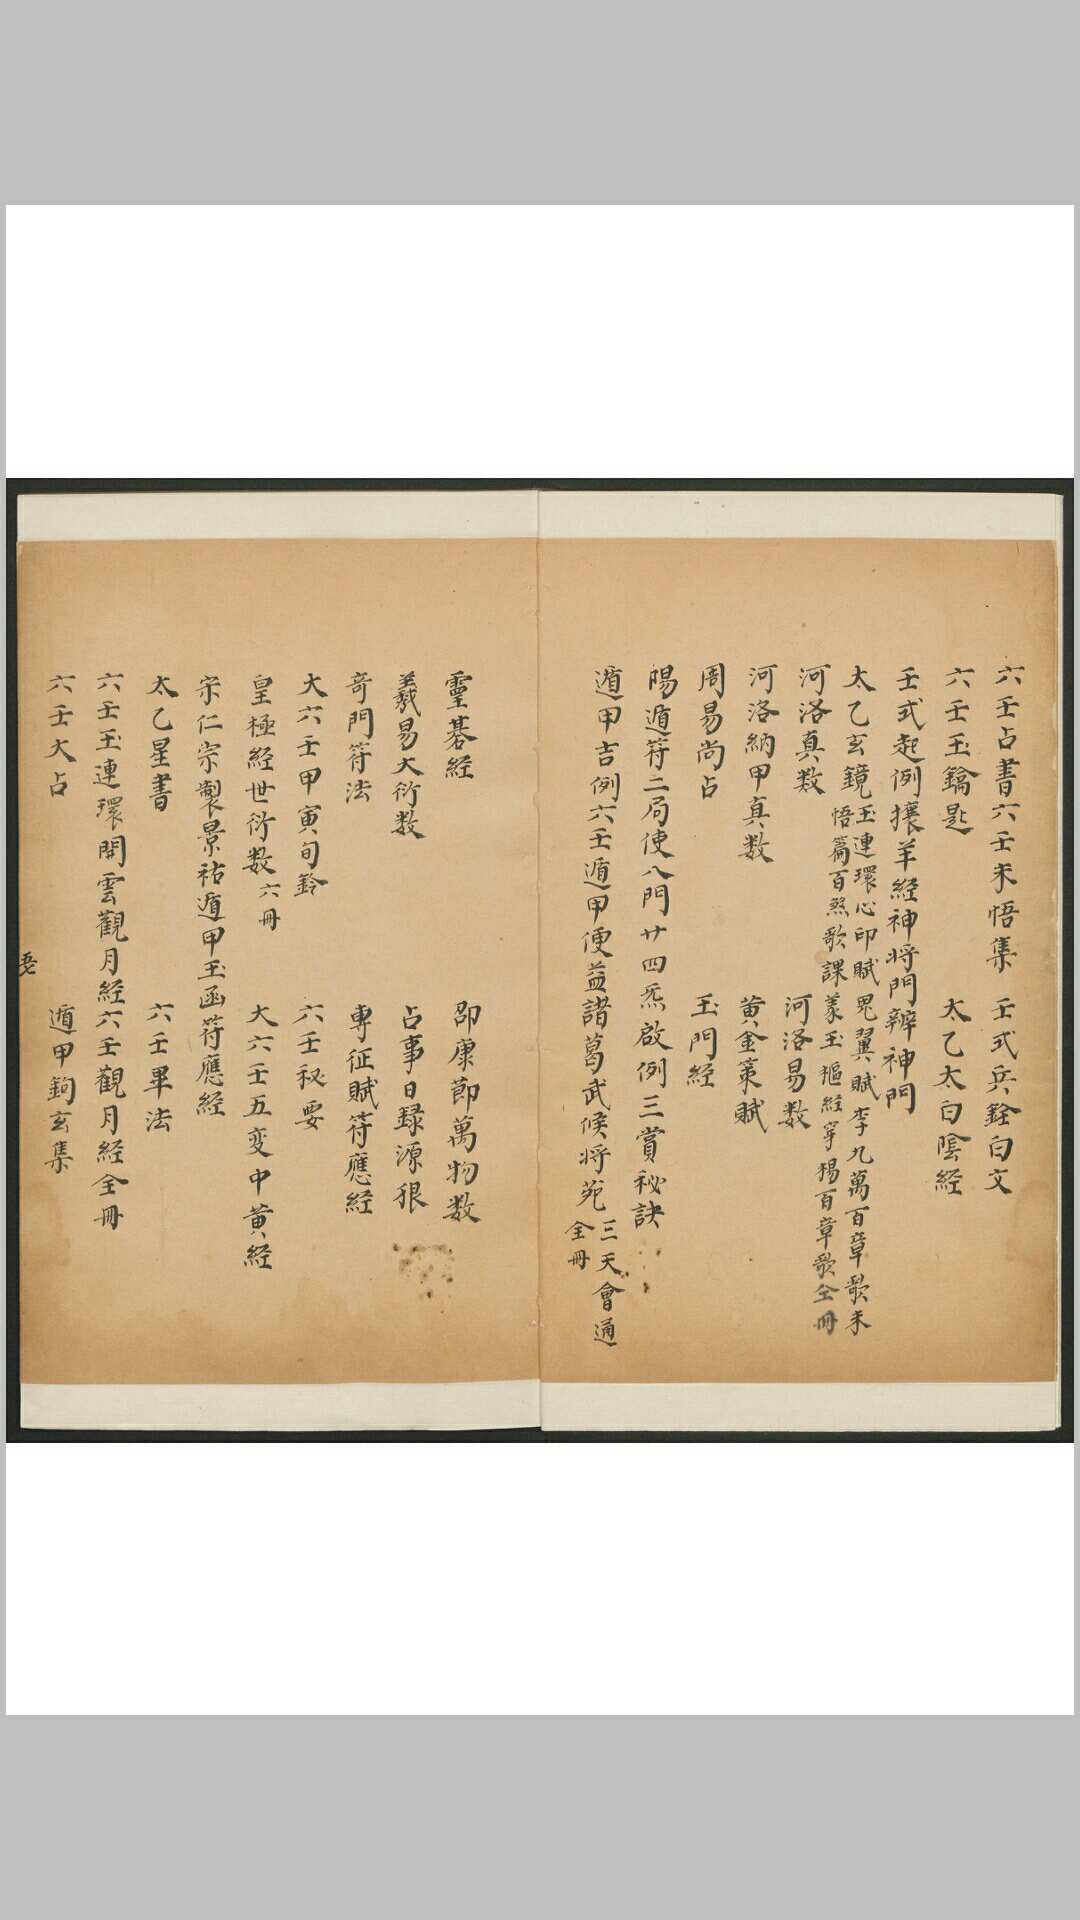 六壬占書六壬未悟集 壬式兵銓白文
六壬玉鑰匙 太乙太白陰經
壬式起例攘羊經神将門辨神門
太乙玄鏡玉連環心印賦 鬼翼賦李九萬百章歌未
悟篇百煞歌課 玉樞経 百章歌全冊
河洛真数 河洛易数
河洛納甲真数 黄金策賦
周易尚占 玉門経
陽遁符二局使八門廿四炁啟例三賞秘訣
遁甲吉例六壬遁甲便益諸葛武侯将苑三天會通
全冊
靈棊経 邵康節萬物数
羲易大衍数 占事日録源根
竒門符法 専征賦符應経
大六壬甲寅旬鈴 六壬秘要
皇極経世衍数六冊 大六壬五变中黄経
宋仁宗製景祐遁甲玉函符應経
太乙星書 六壬畢法
六壬玉連環開雲觀月経六壬觀月経全冊
六壬大占 遁甲鉤玄集